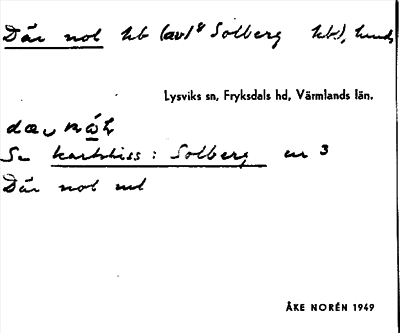 Där nol hb (av) Solberg hbl), hund
Lysviks sn, Fryksdals hd, Värmlands län.
Se kartskiss : Solberg nr 3
Där nol
ÅKE NORÉN 1949